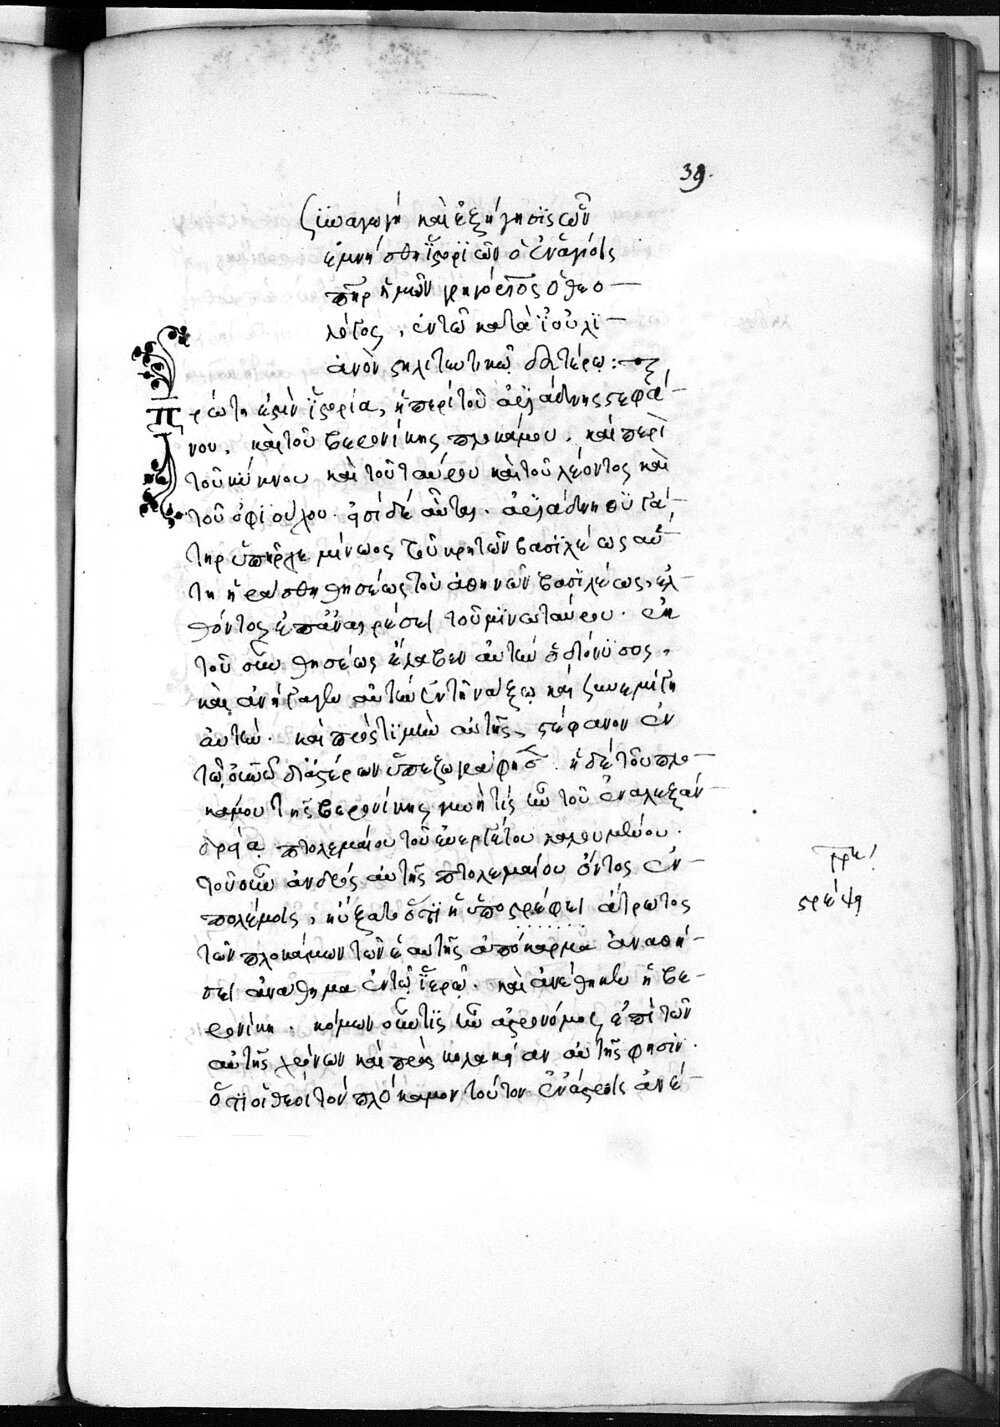 39.
Συναγωγὴ καὶ ἐξήγησις ὧν
ἐμνήσθη ἱστοριῶν ὁ ἐν ἁγίοις
πηρ ἡμῶν γρηγόριος ὁ θεο-
λόγος, ἐν τῶ κατὰ ἰουλι-
ανὸν στηλιτευτικῶ δευτέρω :-
Πρώτη ἐστὶν ἱστορία, ἡ περὶ τοῦ ἀριάδνης στεφά-
νου, καὶ τοῦ βερονίκης πλοκάμου. καὶ περὶ
τοῦ κύκνου καὶ τοῦ ταύρου καὶ τοῦ λέοντος καὶ
τοῦ ὀφιούχου. εἰσὶ δὲ αὗται. ἀριάδνη θυγά-
τηρ ὑπῆρχε μίνωος τοῦ κρητῶν βασιλέως αὕ-
τη ἠράσθη θησέως τοῦ ἀθηνῶν βασιλέως, ἐλ-
θόντος ἐπ' ἀναιρέσει τοῦ μινωταύρου. ἐκ
τοῦ οὖν θησέως ἔλαβεν αὐτὴν ὁ διόνυσος,
καὶ ἀνήγαγεν αὐτὴν ἐν τῆ νάξω καὶ συνεμίγη
αὐτῆ. καὶ πρὸς τιμὴν αὐτῆς, στέφανον ἐν
τῶ οὐνῶ δι' ἀστέρων ὑπεζωγράφησ. ἡ δὲ τοῦ πλο-
κάμου τῆς βερονίκης γυνή τις ἦν τοῦ ἐν ἀλεξαν-
δρεία πτολεμαίου τοῦ εὐεργέτου καλουμένου.
τοῦ οὖν ἀνδρὸς αὐτῆς πτολεμαίου ὄντος ἐν
πολέμοις, ηὔξατο ὅτι ἢ ὑποστρέφει ἄτρωτος
τῶν πλοκάμων τῶν ἑαυτῆς ἀπόκαρμα ἀναθή-
σει ἀνάθημα ἐν τῶ ἱερῶ. καὶ ἀνέθηκεν ἡ βε-
ρονίκη. κόμων οὖν τις ἦν ἀστρονόμος ἐπὶ τῶν
αὐτῆς χρόνων καὶ πρὸς κολακείαν αὐτῆς φησὶν.
ὅτι οἱ θεοὶ τὸν πλόκαμον τοῦτον ἐν ἄστροις ἀνέ-
στρέψη